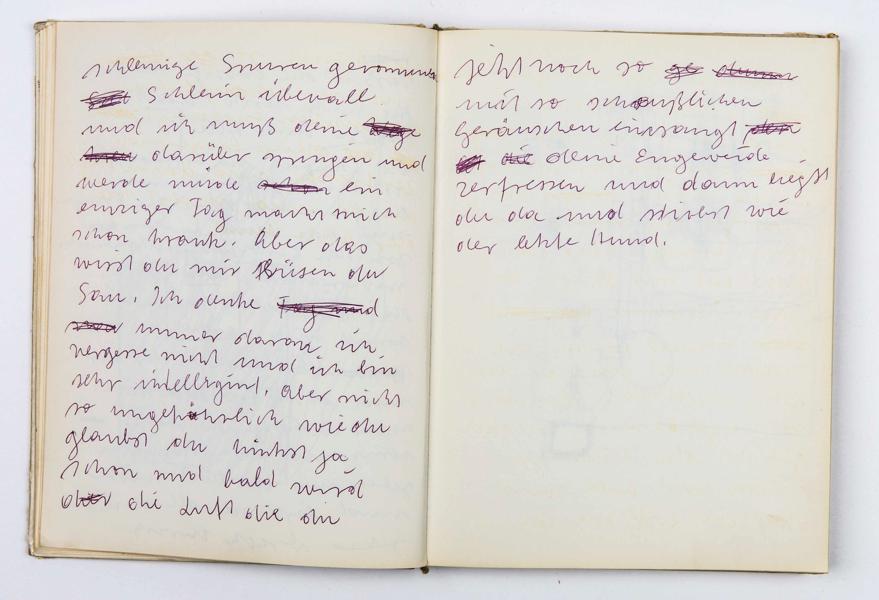 schleimige Spuren genommen
Schleim überall
und ich muß deine
darüber springen und
werde müde ein
einziger Tag macht mich
schon krank. Aber das
wirst du mir büsen du
Sau. Ich denke
immer daran ich
vergesse nicht und ich bin
sehr intelligint. Aber nicht
so ungefährlich wie du
glaubst du hinkst ja
schon und bald wird
die Luft die du
jetzt noch so
mit so scheußlichen
Geräuschen einsaugst
deine Engeweide
zerfressen und dann liegst
du da und stirbst wie
der letzte Hund.